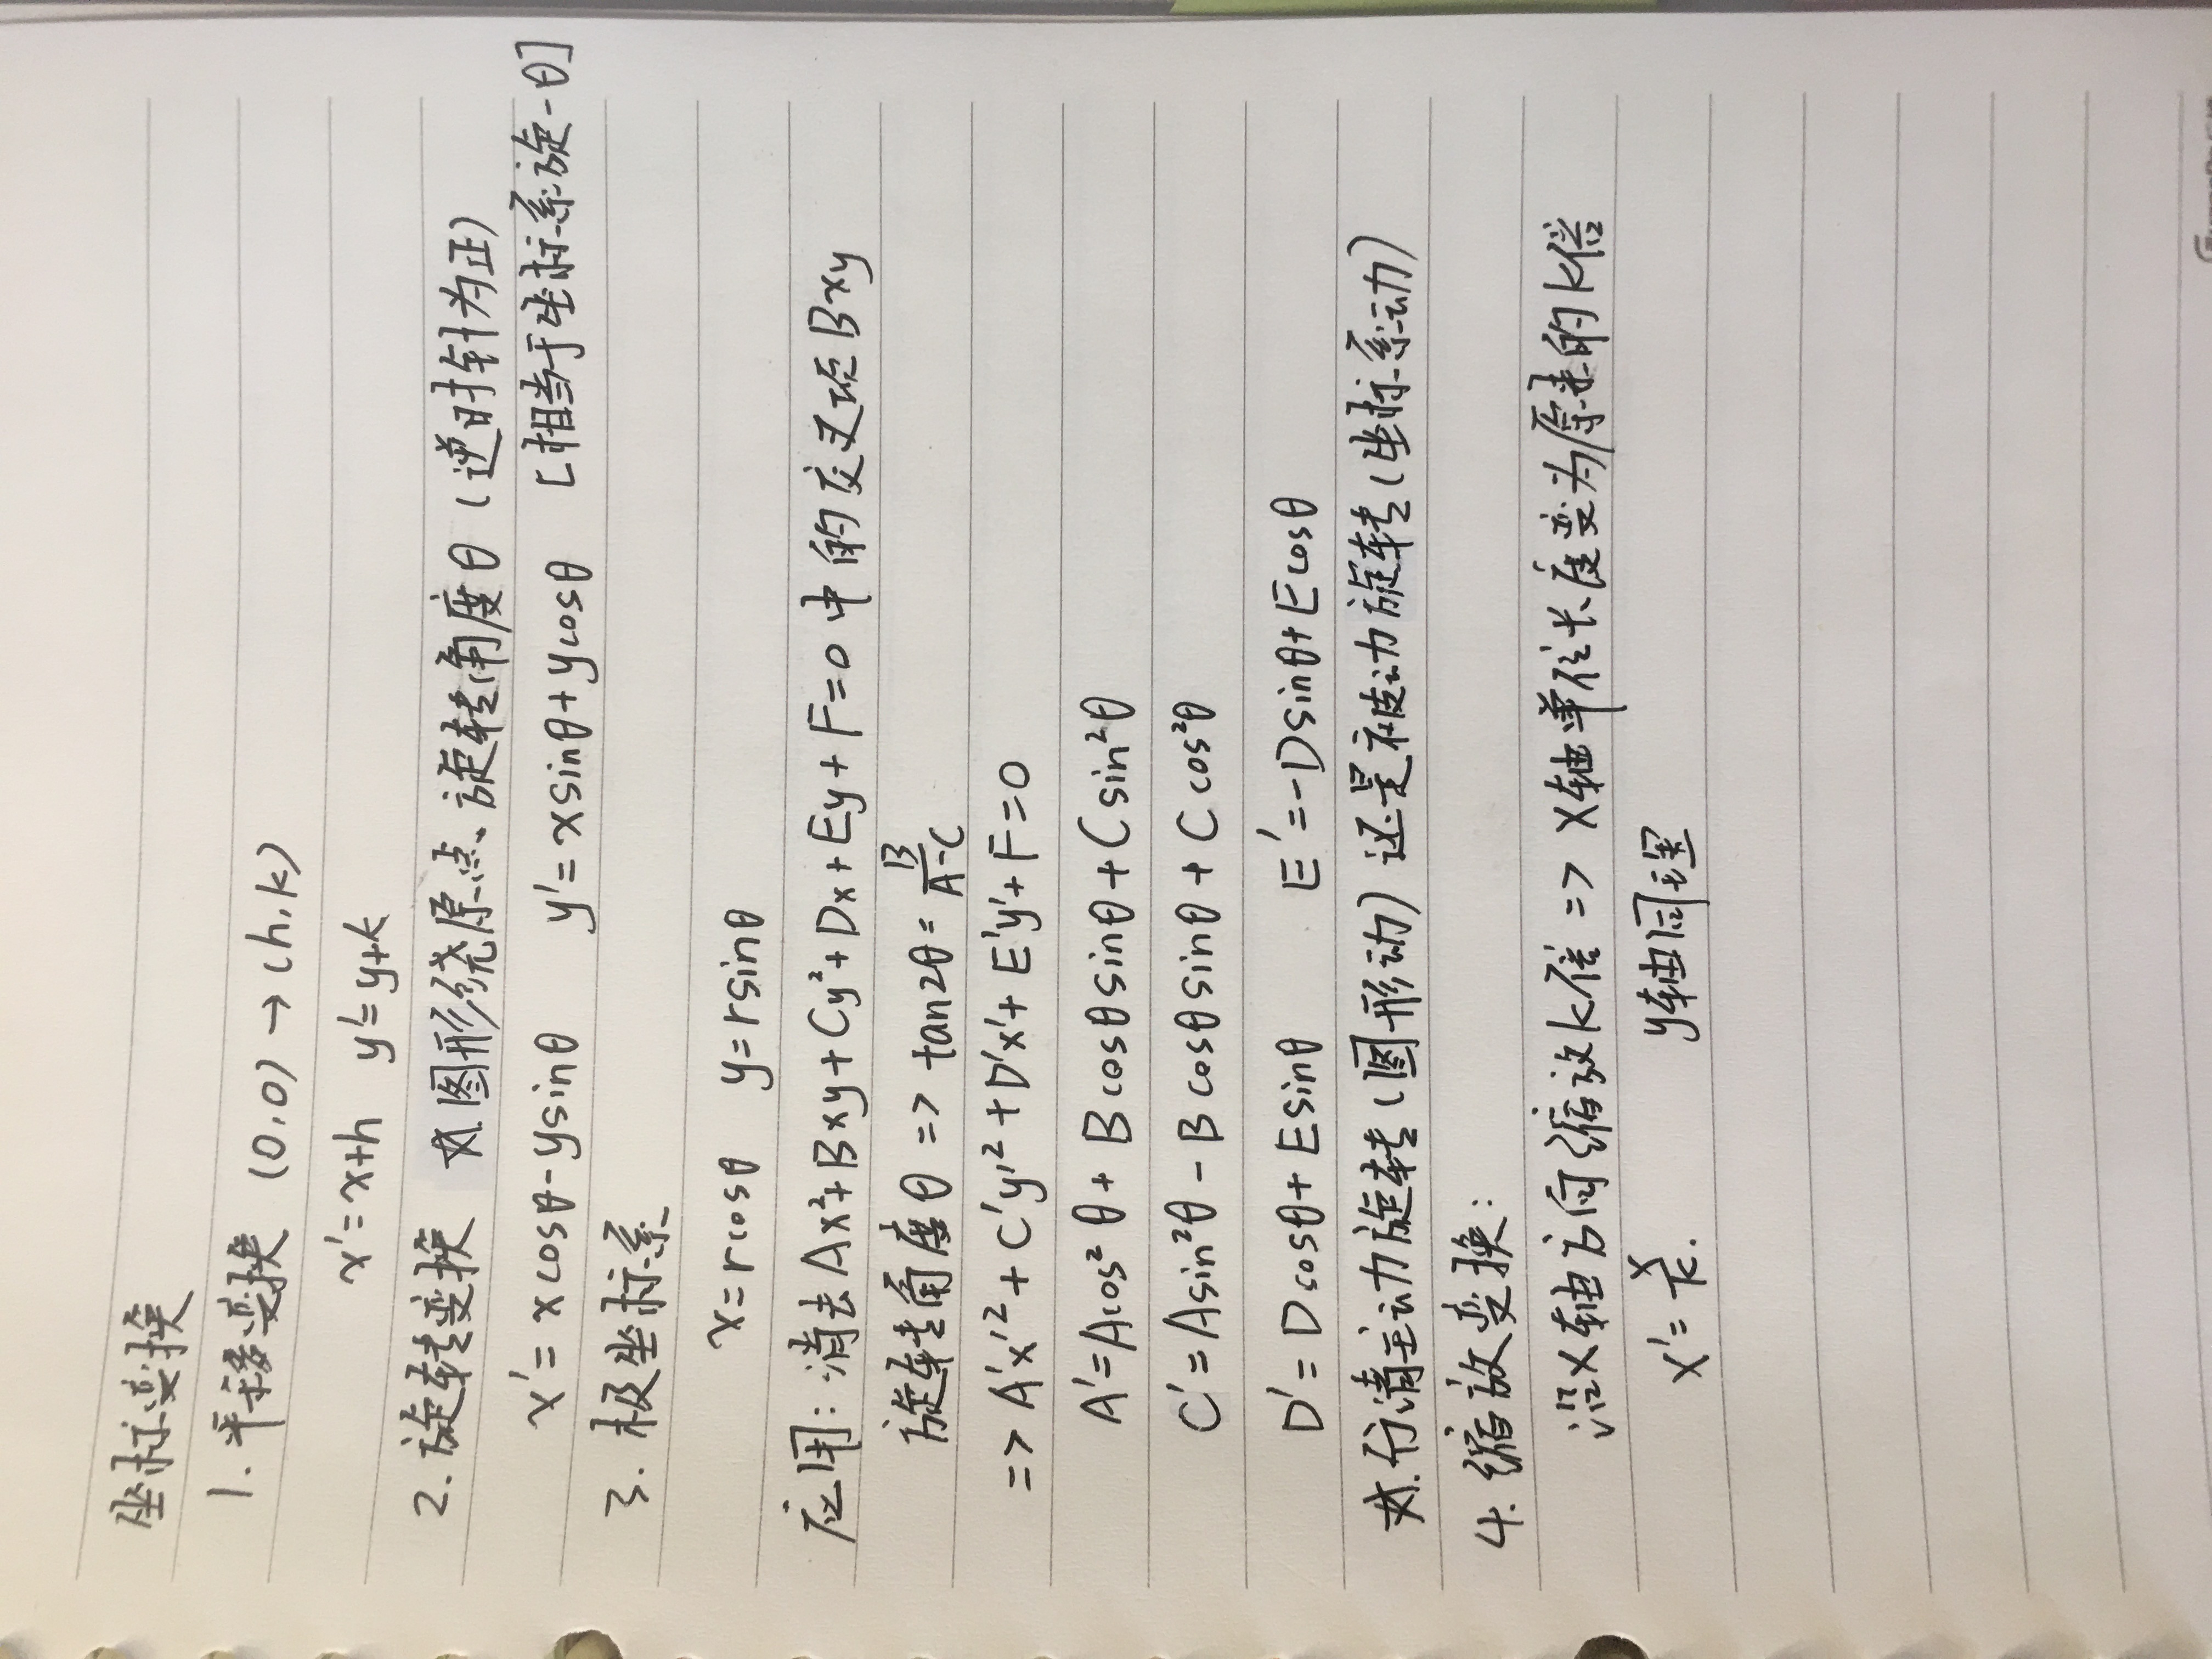 坐标变换
1. 平移变换 (0,0) → (h,k)
x'=x+h y'=y+k
2. 旋转变换 ☆.图形绕原点旋转角度θ(逆时针为正)
x'=xcosθ-ysinθ y'=xsinθ+ycosθ [相当于坐标系旋-θ]
3. 极坐标系
x=rcosθ y=rsinθ
应用: 消去Ax²+Bxy+Cy²+Dx+Ey+F=0中的交叉项Bxy
旋转角度θ => tan2θ=B/(A-C)
=> A'x'²+C'y'²+D'x'+E'y'+F=0
A'=Acos²θ+Bcosθsinθ+Csin²θ
C'=Asin²θ-Bcosθsinθ+Ccos²θ
D'=Dcosθ+Esinθ E'=-Dsinθ+Ecosθ
☆.分清主动旋转(图形动)还是被动旋转(坐标系动)
4. 缩放变换:
沿x轴方向缩放k倍 => x轴单位长度变为原来的k倍
x'=x/k. y轴同理